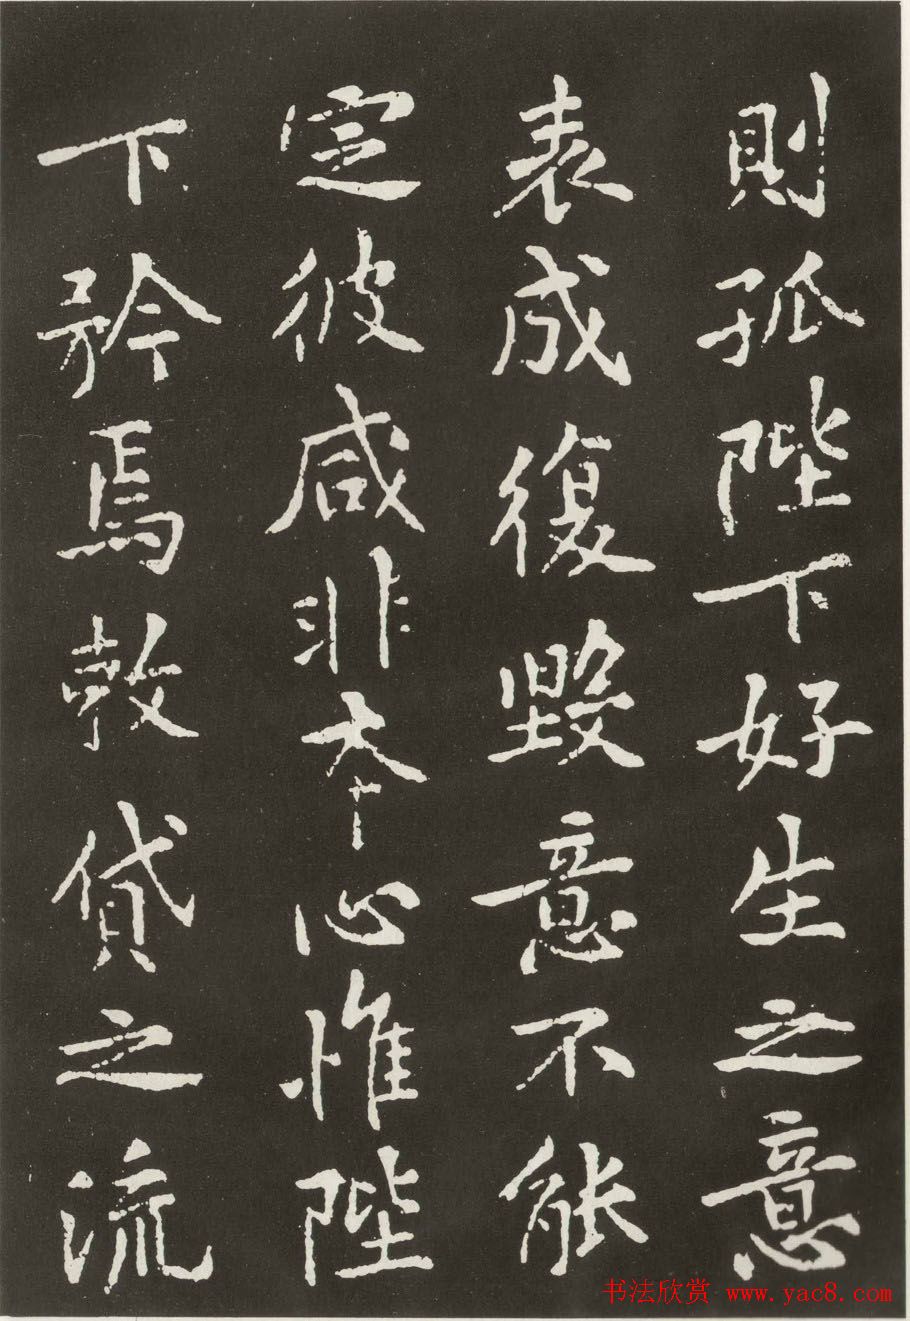 則孤陛下好生之意
表成復毀意不能
定彼咸非本心惟陛
下矜焉敦貸之流
书法欣赏 www.yac8.com